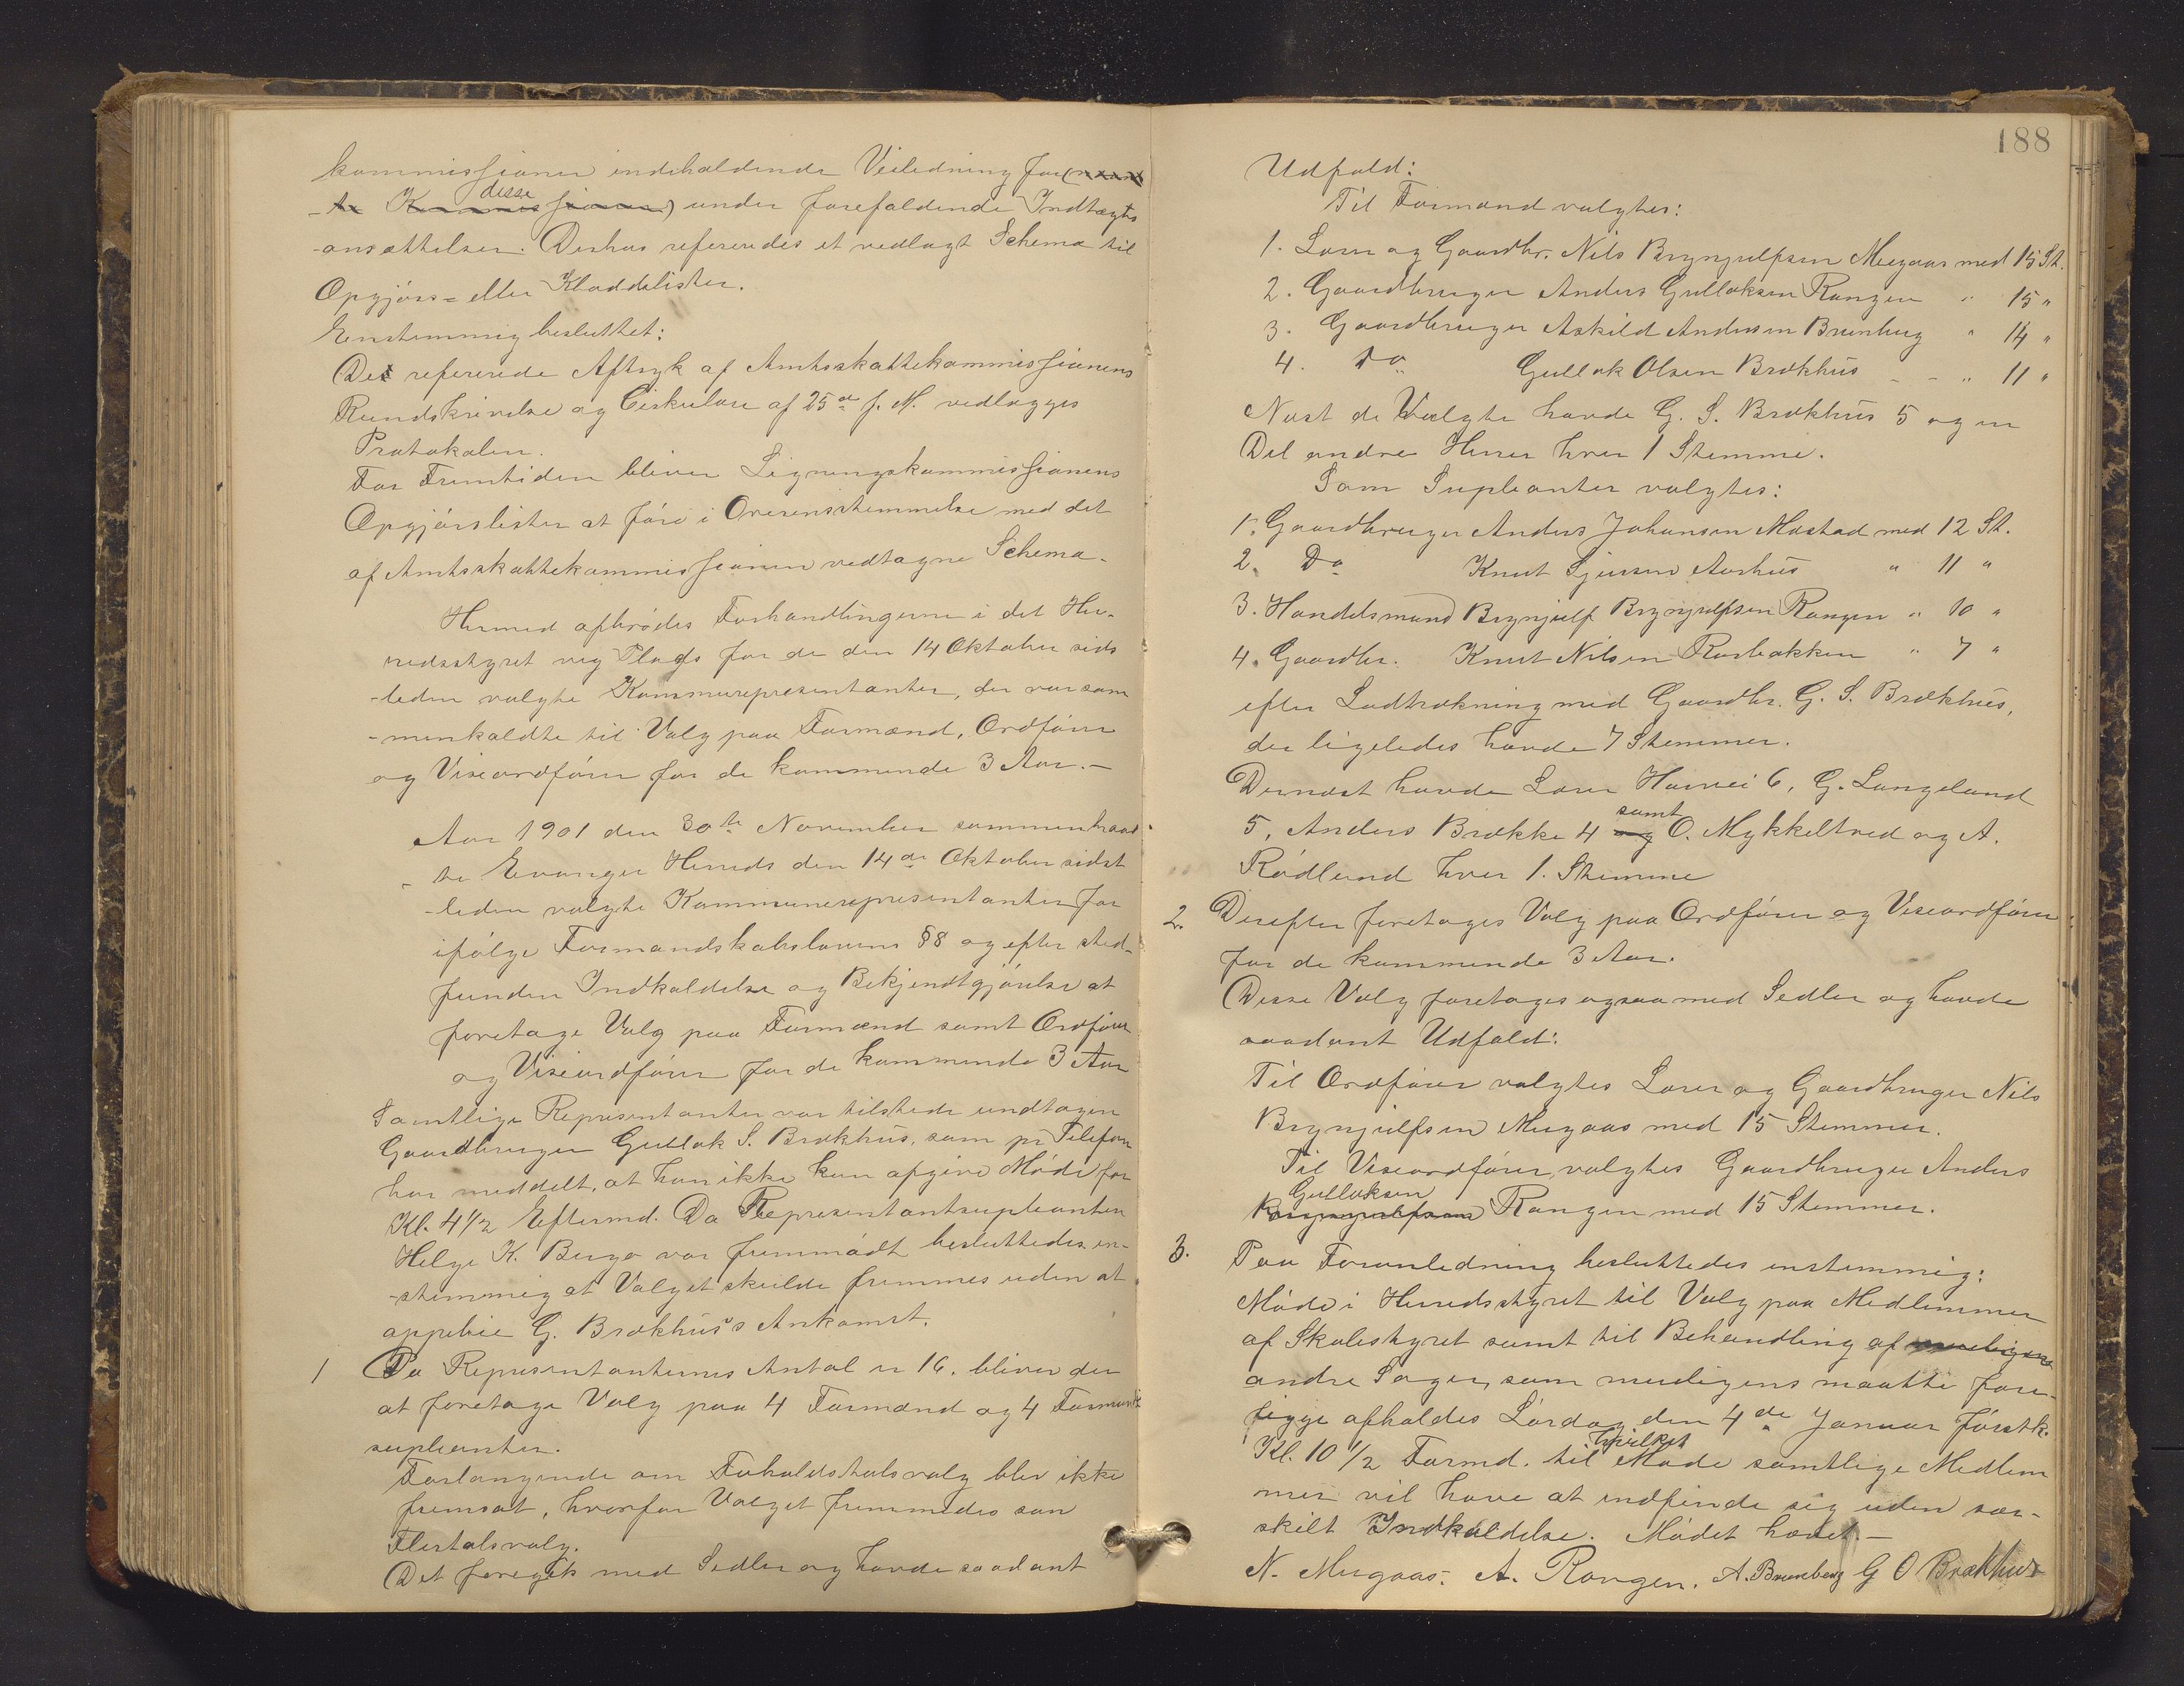 kommissioner indeholdende Veiledning for
disse
under forefaldende Indtægts
-ansættelser. Desuden refereredes et vedlagt Schema til
Opgjørs- eller Kladdelister.
Enstemmig besluttet:
Det refererede Aftryk af Amtsskattekommissionens
Rundskrivelse og Cirkulære af 25de f. M. vedlægges
Protokolen.
For Fremtiden bliver Ligningskommissionens
Opgjørslister at føre i Overensstemmelse med det
af Amtsskattekommissionen vedtagne Schema.
Hermed afbrødes Forhandlingerne i det Her-
redsstyret veg Plads for de den 14 Oktober sids
-leden valgte Kommunerepresentanter, der var sam
-menkaldte til Valg paa Formænd, Ordfører
og Viseordfører for de kommende 3 Aar.-
Aar 1901 den 30te November sammentraad
-te Evanger Herreds den 14de Oktober sidst
-leden valgte Kommunerepresentanter for
ifølge Formandskabslovens §8 og efter sted-
funden Indkaldelse og Bekjendtgjørelse at
foretage Valg paa Formænd samt Ordfører
og Viseordfører for de kommende 3 Aar
Samtlige Representanter var tilstede undtagen
Gaardbruger Gullak S. Brækhus, som pr Telefon
har meddelt, at han ikke kan afgive Møde før
Kl. 4 1/2 Eftermd. Da Representantsupleanten
Helge K. Bergo var fremmødt besluttedes en-
-stemmig at Valget skulde fremmes uden at
oppebie G. Brækhus's Ankomst.
1 Da Representanternes Antal er 16. bliver der
at foretage Valg paa 4 Formænd og 4 Formands
supleanter.
Forlangende om Forholdstalsvalg blev ikke
fremsat, hvorfor Valget fremmedes som
Flertalsvalg.
Det foregik med Sedler og havde saadant
188
Udfald:
Til Formænd valgtes:
1. Lærer og Gaardbr. Nils Brynjulfsen Mugaas med 15 St.
2. Gaardbruger Anders Gullaksen Rangen " 15 "
3. Gaardbruger Askild Andersen Brunborg " 14 "
4. Do Gullak Olsen Brækhus - - " 11 "
Næst de Valgte havde G. S. Brækhus 5 og en
Del andre Herrer hver 1 Stemme.
Som Supleanter valgtes:
1. Gaardbruger Anders Johansen Mæstad med 12 St.
2. Do Knut Sjursen Aarhus " 11 "
3. Handelsmand Brynjulf Brynjulfsen Rangen " 10 "
4. Gaardbr. Knut Nilsen Rasbakken " 7 "
efter Lodtrækning med Gaardbr. G. S. Brækhus,
der ligeledes havde 7 Stemmer.
Dernæst havde Lærer Horvei 6, G. Langeland
samt
5, Anders Brække 4 og O. Mykkeltved og A.
Rødlund hver 1. Stemme
2. Derefter foretages Valg paa Ordfører og Viseordfører
for de kommende 3 Aar.
Disse Valg foretages ogsaa med Sedler og havde
saadant Udfald:
Til Ordfører valgtes Lærer og Gaardbruger Nils
Brynjulfsen Mugaas med 15 Stemmer.
Til Viseordfører valgtes Gaardbruger Anders
Gullaksen
Brynjulfsen Rangen med 15 Stemmer.
3. Paa Foranledning besluttedes enstemmig:
Møde i Herredsstyret til Valg paa Medlemmer
af Skolestyret samt til Behandling af muligens
andre Sager, som muligens maatte fore-
ligge afholdes Lørdag den 4de Januar førstk.
hvilket
Kl. 10 1/2 Formd. til Møde samtlige Medlem
mer vil have at indfinde sig uden sær-
skilt Indkaldelse. Mødet hævet.-
N. Mugaas. A. Rangen. A. Brunborg G O Brækhus